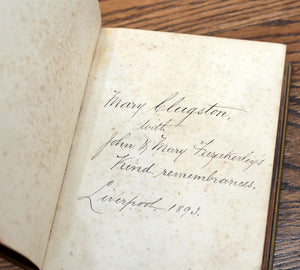 Mary Clugston,
with
John & Mary Fazakerleys
Kind remembrances.
Liverpool, 1893.